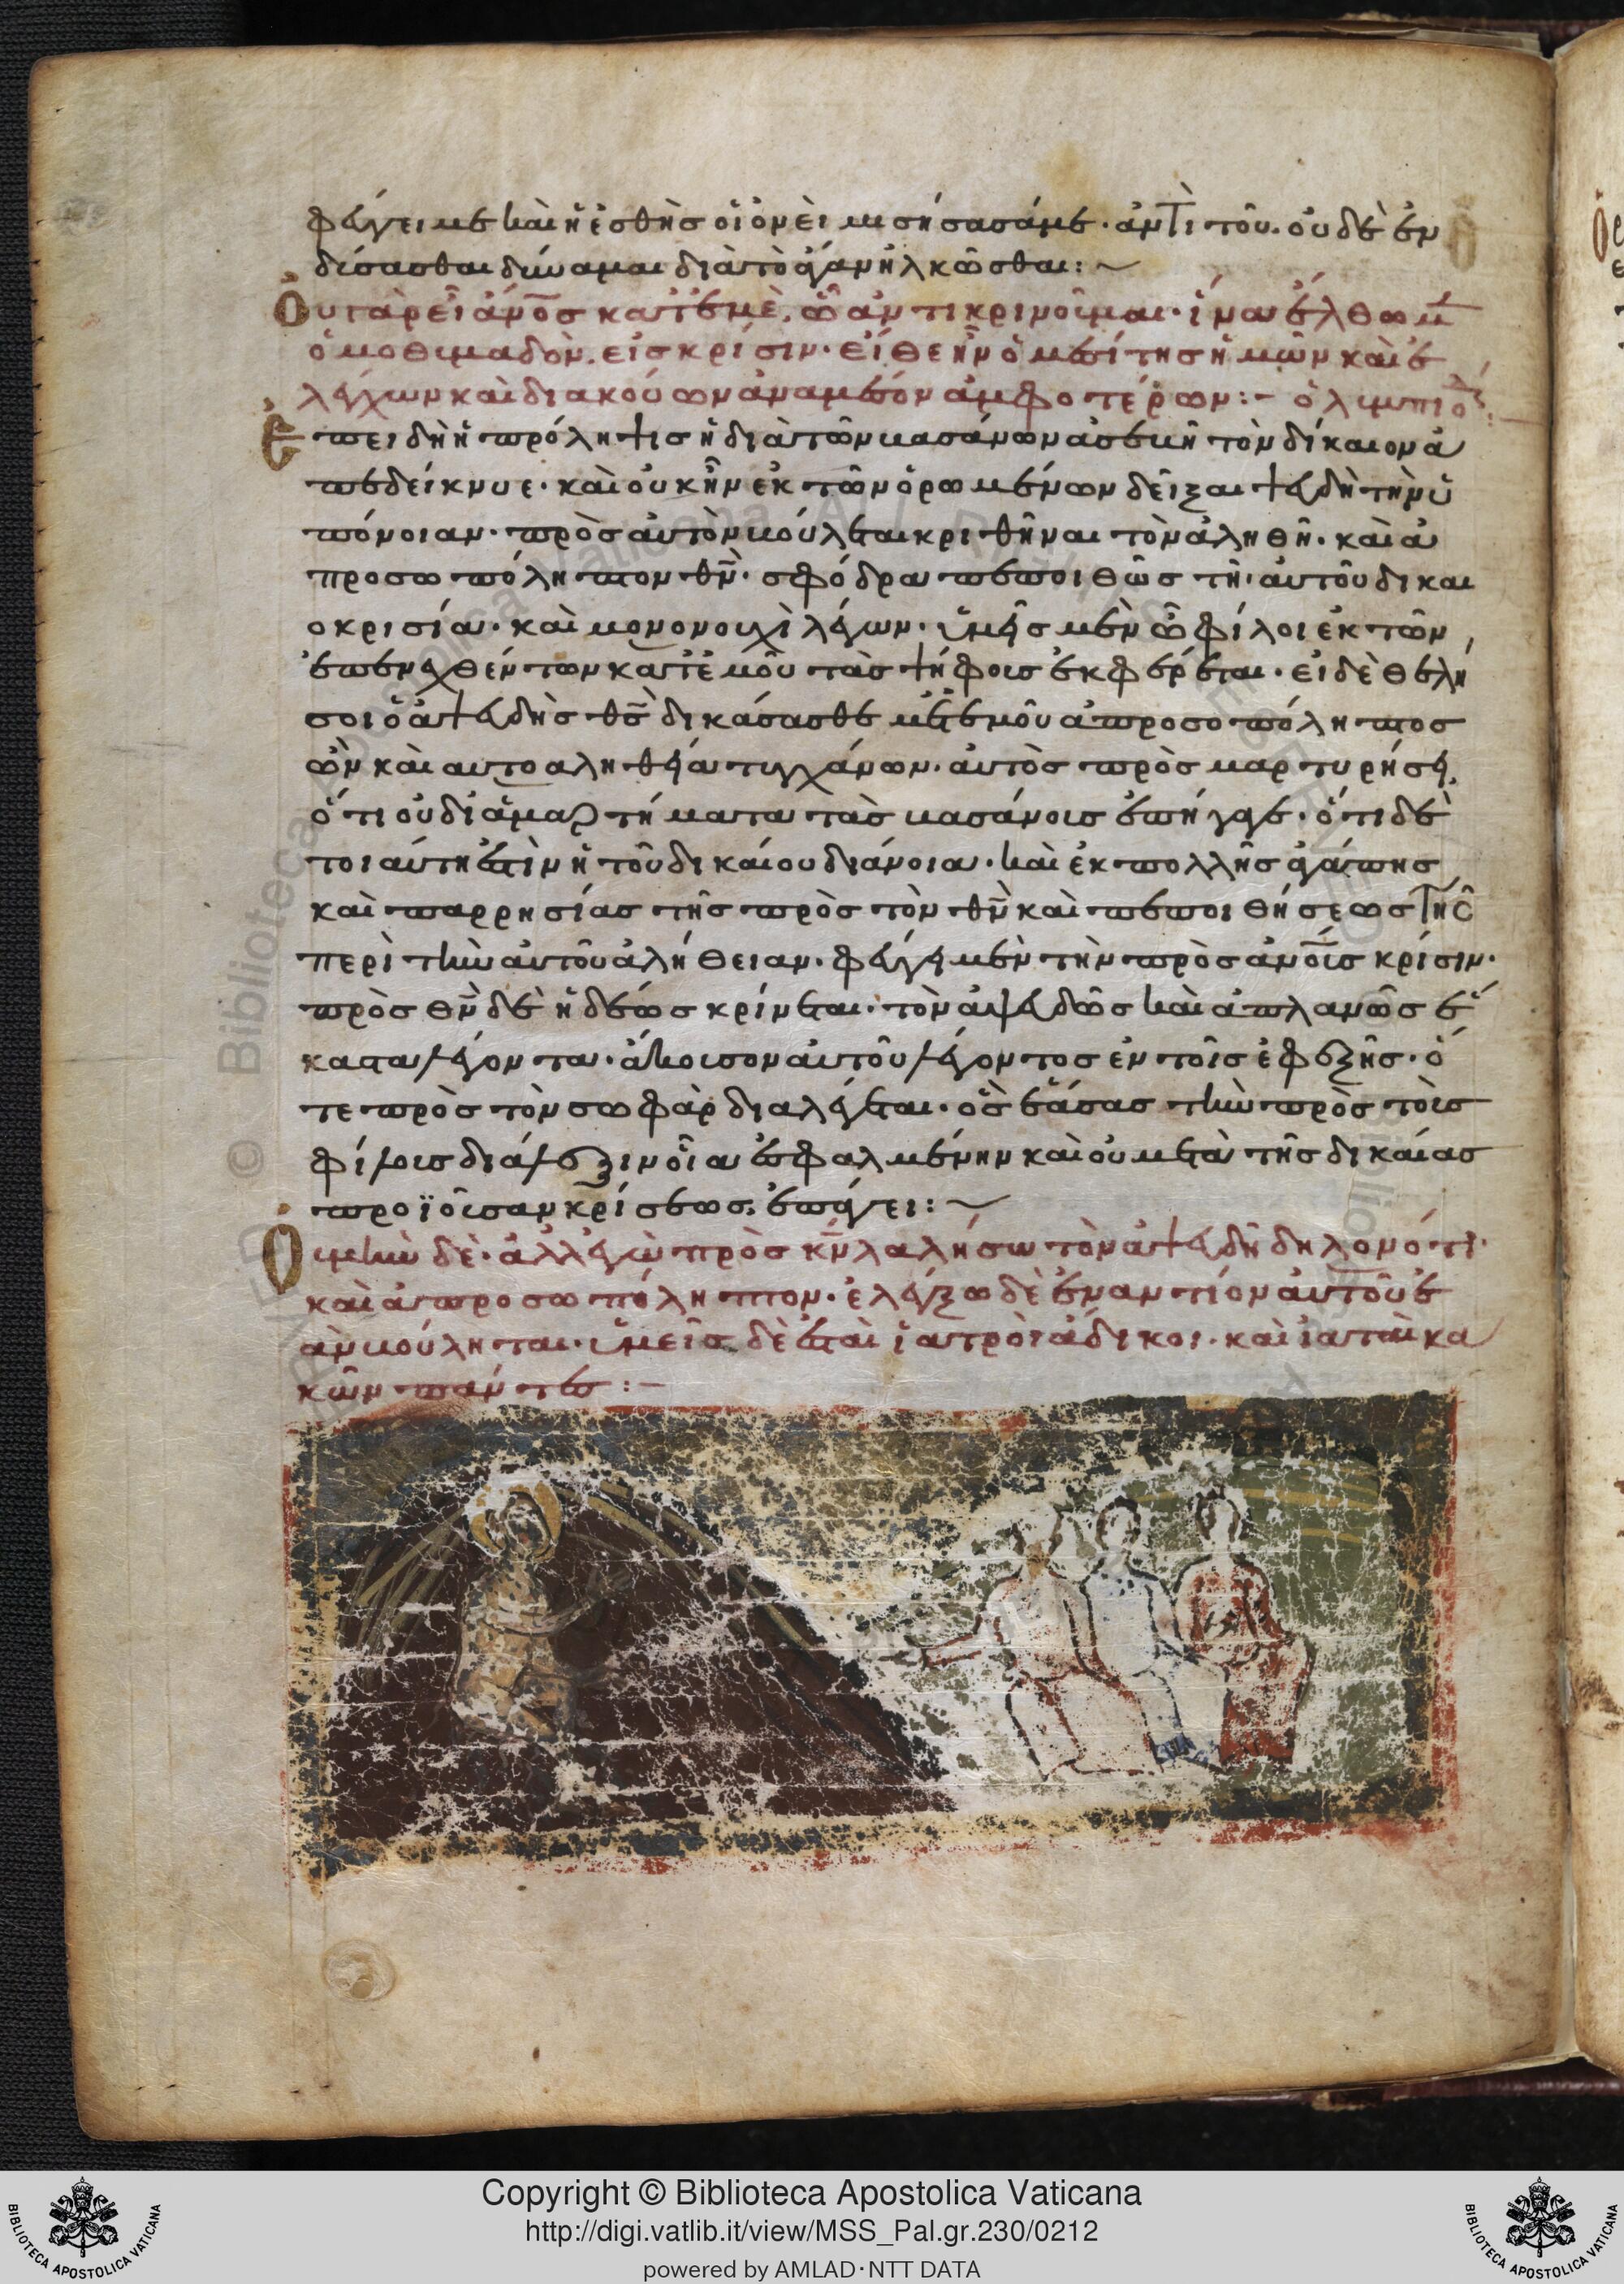 φεύγει με καὶ ἡ ἐσθὴς οἱονεὶ μισήσασά με· ἀντὶ τοῦ· οὐδὲ ἐν
δύσασθαι δύναμαι διὰ τὸ ἄγαν ἡλκῶσθαι:
Οὐ γὰρ εἶ ἄνος κατ' ἐμὲ, ᾧ ἀντικρινοῦμαι· ἵνα ἔλθωμ
ὁμοθυμαδὸν εἰς κρίσιν· εἴθε ἦν ὁ μεσίτης ἡμῶν καὶ ἐ
λέγχων καὶ διακούων ἀναμέσον ἀμφοτέρων:- ὀλυμπιο
Ἐπειδὴ ἡ πρόληψις ἡ διὰ τῶν βασάνων ἀσεβῆ τὸν δίκαιον ἀ
πεδείκνυε· καὶ οὐκ ἦν ἐκ τῶν ὁρωμένων δεῖξαι ψευδῆ τὴν ὑ
πόνοιαν· πρὸς αὐτὸν βούλεται κριθῆναι τὸν ἀληθῆ· καὶ ἀ
προσωπόληπτον θν· σφόδρα πεποιθὼς τῇ αὐτοῦ δικαι
οκρισίᾳ· καὶ μονονουχὶ λέγων· ὑμεῖς μὲν ὦ φίλοι ἐκ τῶν
ἐπενεχθέντων κατ' ἐμοῦ τὰς ψήφους ἐκφέρεται· εἰ δὲ θελή
σοι ὁ ἀψευδὴς θς δικάσασθε μετ' ἐμοῦ ἀπροσοπόληπτος
ὢν καὶ αυτοαληθεία τυγχάνων· αὐτὸς πρὸς μαρτυρήσει
ὅτι οὐ δι' ἁμαρτήματα τὰς βασάνους ἐπήγαγε· ὅτι δὲ
τοιαύτη ἐστὶν ἡ τοῦ δικαίου διάνοια· καὶ ἐκ πολλῆς ἀγάπης
καὶ παρρησίας τῆς πρὸς τὸν θν καὶ πεποιθήσεως τῆς
περὶ τὴν αὐτοῦ ἀλήθειαν· φεύγει μὲν τὴν πρὸς ἀνους κρίσιν·
πρὸς θν δὲ ἡδέως κρίνεται· τὸν ἀψευδῶς καὶ ἀπλανῶς ἐ
κατα λέγοντα· ἄκουσον αὐτοῦ λέγοντος ἐν τοῖς ἐφεξῆς· ὅ
τε πρὸς τὸν σωφὰρ διαλέγεται· ὃς ἐάσας τὴν πρὸς τοὺς
φίλους διάλεξιν οἷα ἐσφαλμένην καὶ οὐ μετὰ τῆς δικαίας
προϊοῦσαν κρίσεως, ἐπάγει:
Οὐ μὴν δὲ· ἀλλ' ἐγὼ πρὸς κν λαλήσω τὸν ἀψευδῆ δηλονότι·
καὶ ἀπροσωπόληπτον· ἐλέγξω δὲ ἐναντίον αὐτοῦ ἐ
ὰν βούληται· ὑμεῖς δὲ ἐσταὶ ἰατροὶ ἄδικοι· καὶ ἰαταὶ κα
κῶν πάντες:-
Copyright © Biblioteca Apostolica Vaticana
http://digi.vatlib.it/view/MSS_Pal.gr.230/0212
powered by AMLAD·NTT DATA
BIBLIOTECA APOSTOLICA VATICANA
BIBLIOTECA APOSTOLICA VATICANA